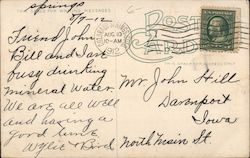 Springs
8/9-12
Friend John
Bill and I are
busy drinking
mineral water
We are all well
and having a
good time
POST
CARD
AUG 10
10-AM
1912
Mr John Hill
Davenport
Iowa
North Main St.